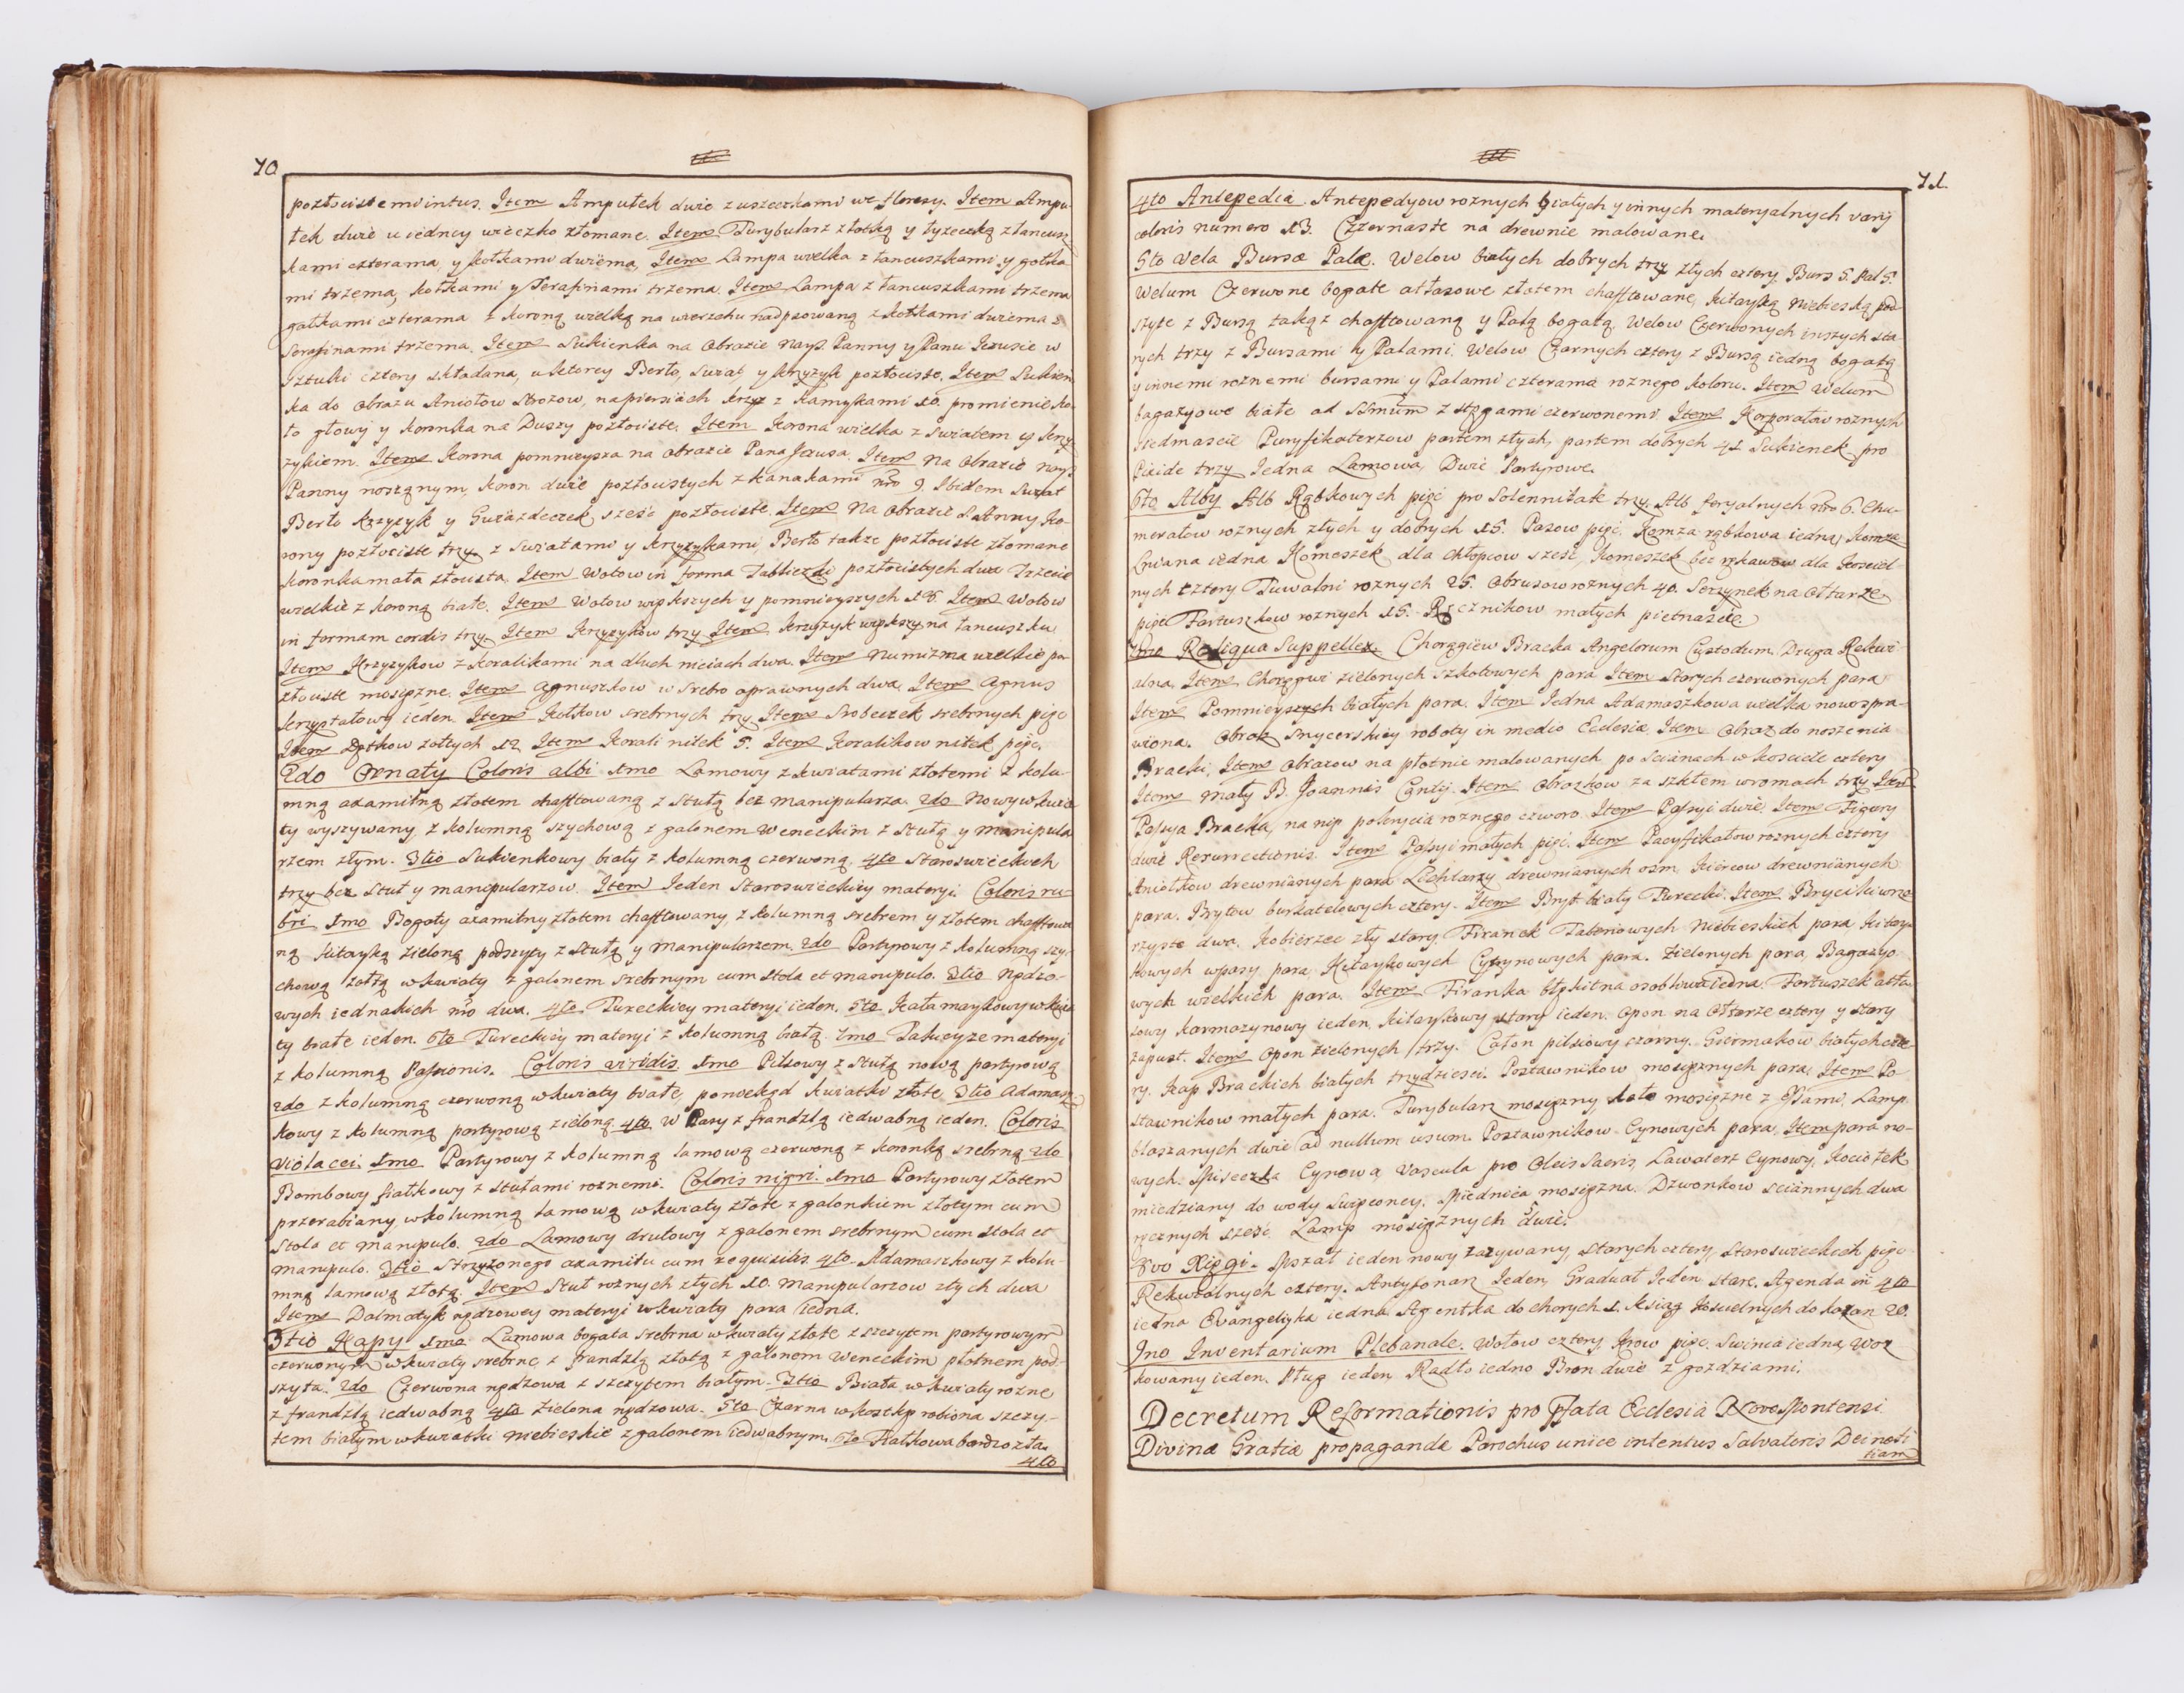 70
pozłociste mi intus. Item Ampułek dwie z uszeczkami we floresy. Item Ampu-
łek dwie u iedney uszeczko złomane. Item Turybularz z łotką y łyżeczką z łancusz
kami czterama, y kołkami dwiema, Item Lampa wielka z łancuszkami y gołka
mi trzema, kołkami y Serafinami trzema. Item Lampa z łancuszkami trzema
gałkami czterama z koroną wielką na wierzchu nadpsowaną z kołkami dwiema z
Serafinami trzema. Item Sukienka na Obrazie Nays. Panny y Panu Jezusie w
Sztuki cztery składana, u ktorey Berło, Swiat y krzyżyk pozłociste. Item Sukien
ka do Obrazu Aniołow Strożow, na piersiach krzyż z kamykami 10. promienie ko-
ło głowy y koronka na Duszy pozłociste. Item Korona wielka z swiatem y krzy
żykiem. Item Korona pomnieysza na Obrazie Pana Jezusa. Item Na Obrazie Nays.
Panny noszącym, koron dwie pozłocistych z kanakami nro 9. Ibidem Swiat
Berło krzyżyk y Gwiazdeczek sześć pozłociste. Item Na Obrazie S. Anny Ko-
rony pozłociste trzy z swiatami y krzyżykami, Berło także pozłociste złomane
koronka mała złocista. Item Wotow in forma Tabliczki pozłocistych dwa Trzecie
wielkie z koroną białe. Item Wotow większych y pomnieyszych 18. Item Wotow
in formam cordis trzy Item Krzyżykow trzy Item Krzyżyk większy na łancuszku
Item Krzyżykow z koralikami na dłuch niciach dwa. Item Numizma wielkie po-
złociste mosiężne. Item Agnuszkow w srebro oprawnych dwa, Item Agnus
krzyształowy ieden. Item Kołkow srebrnych trzy Item Srobeczek srebrnych pięć
Item Pętkow żołtych 12 Item Korali nitek 5. Item Koralikow nitek pięć.
2do Ornaty Coloris albi 1mo Lamowy z kwiatami złotemi z kolu-
mną axamitną złotem chafftowaną z stułą bez manipularza. 2do Nowy w kwia
ty wyszywany z kolumną szychową z galonem Weneckim z stułą y manipula
rzem złym. 3tio Sukienkowy biały z kolumną czerwoną. 4to Staroswieckich
trzy bez stuł y manipularzow. Item Ieden Staroswieckiey materyi. Coloris ru-
bri 1mo Bogaty axamitny złotem chafftowany, z kolumną srebrem y złotem chafftowa
ną kitayką zieloną podszyty z stułą y manipularzem. 2do Partyrowy z kolumną szy-
chową żołtą w kwiaty z galonem srebrnym cum stola et manipulo. 3tio Nędzo-
wych iednakich nro dwa. 4to Tureckiey materyi ieden. 5to Kałamaykowy w kwia
ty białe ieden. 6to Tureckiey materyi z kolumną białą. 7mo Takieyże materyi
z kolumną Passionis. Coloris viridis 1mo Pilsowy z stułą nową partyrową
2do z kolumną czerwoną w kwiaty białe, poniekąd kwiatki złote 3tio Adamasz
kowy z kolumną partyrową zieloną. 4to W Pasy z frandzlą iedwabną ieden. Coloris
violacei. 1mo Partyrowy z kolumną lamową czerwoną z koronką srebrną 2do
Bombowy fiałkowy z stułami roznemi. Coloris nigri. 1mo Partyrowy złotem
przerabiany w kolumną lamową w kwiaty złote z galonkiem złotym cum
Stola et manipulo. 2do Lamowy drutowy z galonem srebrnym cum stola et
manipulo. 3tio Strzyżonego axamitu cum requisitis. 4to Adamaszkowy z kolu-
mną lamową złotą. Item Stuł rożnych złych 10. manipularzow złych dwa
Item Dalmatyk nędzowey materyi w kwiaty para iedna.
3tio Kapy 1mo Lamowa bogata srebrna w kwiaty złote z szczytem partyrowym
czerwonym w kwiaty srebrne, z frandzlą złotą z galonem Weneckim płotnem pod-
szyta. 2do Czerwona nędzowa z szczytem białym. 3tio Biała w kwiaty rozne
z frandzlą iedwabną 4to Zielona nędzowa. 5to Czarna w kostkę robiona szczy-
tem białym w kwiatki niebieskie z galonem iedwabnym. 6to Fiałkowa bardzo zła.
4to
71.
4to Antepedia. Antepedyow roznych białych y innych materyalnych varij
coloris numero 13. Czternaste na drewnie malowane.
5to Vela Bursæ Palæ. Welow białych dobrych trzy złych cztery, Burs 5. Pal 5.
Welum Czerwone bogate atłasowe złotem chafftowane, kitayką niebieską pod
szyte z Bursą takąż chafftowaną y Palą bogatą. Welow Czerwonych inszych sta-
rych trzy z Bursami y Palami. Welow Czarnych cztery z Bursą iedną bogatą
y innemi roznemi bursami y Palami czterama roznego koloru. Item Welum
bagazyowe białe ad SSmum z stęgami czerwonemi. Item Korporałow roznych
siedmnaście Puryfikaterzow partem złych, partem dobrych 41 Sukienek pro
Pixide trzy Iedna Lamowa, Dwie Partyrowe.
6to Alby Alb Rąbkowych pięć pro Solennitate trzy. Alb feryalnych Nro 6. Chu-
merałow roznych złych y dobrych 15. Pasow pięć. Komza rąbkowa iedna, Komza
Lniana iedna Komeszek dla chłopcow szesc, Komeszek bez rękawow dla Kosciel-
nych cztery Tuwalni roznych 25. Obrusow roznych 40. Serzynek na Ołtarze
pięć Fartuszkow roznych 15. Ręcznikow małych pietnaście
7mo Reliqua Suppellex. Chorągiew Bracka Angelorum Custodum. Druga Rekwi-
alna. Item Chorągwi zielonych szkotowych para Item Starych czerwonych para
Item Pomnieyszych białych para. Item Iedna Adamaszkowa wielka nowospra-
wiona. Obraz Snycerskiey roboty in medio Ecclesiæ, Item Obraz do noszenia
Bracki, Item Obrazow na płotnie malowanych po scianach w kosciele cztery
Item Mały B. Joannis Cantij. Item Obrazkow za szkłem w ramach trzy Item
Passya Bracka, na nię pokrycia roznego czworo. Item Passyi dwie. Item Figury
dwie Resurrectionis. Item Passyi małych pięć. Item Pacyfikałow roznych cztery
Aniołkow drewnianych para Lichtarzy drewnianych osm. Kiercow drewnianych
para. Brytow burkatelowych cztery. Item Bryt biały Turecki. Item Brycikiwrze
rzyste dwa. Kobierzec zły stary. Firanek Tabinowych Niebieskich para, Kitay-
kowych w pasy para. Kitaykowych Cytrynowych para. Zielonych para, Bagazyo-
wych wielkich para. Item Firanka błękitna osobliwa iedna. Fartuszek atła-
sowy karmazynowy ieden, kitaykowy stary ieden. Opon na Ołtarze cztery y stary
zapust. Item Opon zielonych trzy. Całon pilsiowy czarny. Giermakow białych czte-
ry. Kap Brackich białych trzydzieści. Postawnikow mosiężnych para. Item Po-
stawnikow małych para. Turybularz mosiężny, koło mosiężne z Essami, Lamp.
blaszanych dwie ad nullum usum. Postawnikow Cynowych para, Item para no-
wych. Miseczka Cynowa, vascula pro Oleis Sacris, Lawaterz Cynowy. Kociołek
miedziany do wody Swięconey. Miednica mosiężna. Dzwonkow sciannych dwa
ręcznych sześć. Lamp mosiężnych dwie.
8vo Xięgi. Mszał ieden nowy zazywany, starych cztery, staroswieckich pięć
Rekwialnych cztery. Antyfonarz Ieden, Graduał Ieden stare. Agenda in 4to
iedna Evangeliyka iedna Agentka do chorych 1. Ksiąg koscielnych do kazan 20.
9no Inventarium Plebanale. Wołow cztery, krow pięc, Swinia iedna, Woz
kowany ieden. Pług ieden Radło iedno Bron dwie z gozdziami.
Decretum Reformationis pro Pfata Ecclesia Novo Montensi
Divinæ Gratiæ propagandæ Parochus unice intentus Salvatoris Dei nosti
tiam